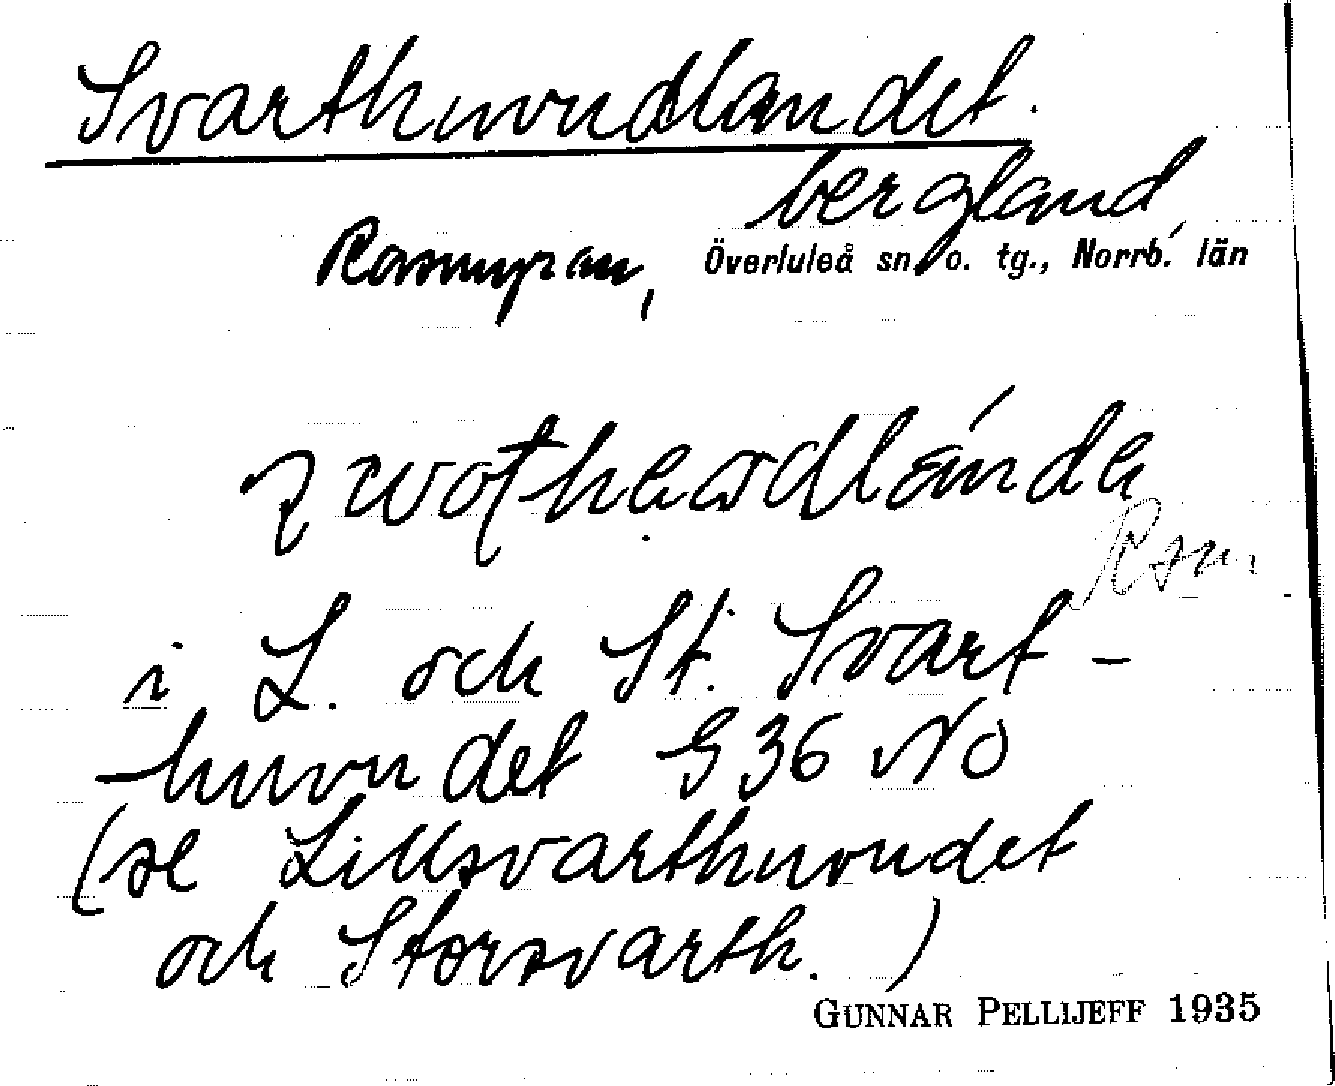 Svarthuvudlandet.
bergland
Rasmyran, Överluleå sn o. tg., Norrb. län
Rsm
i L. och St. Svart-
huvudet G 36 NO
(se Lillsvarthuvudet
och Storsvarth.)
GUNNAR PELLIJEFF 1935